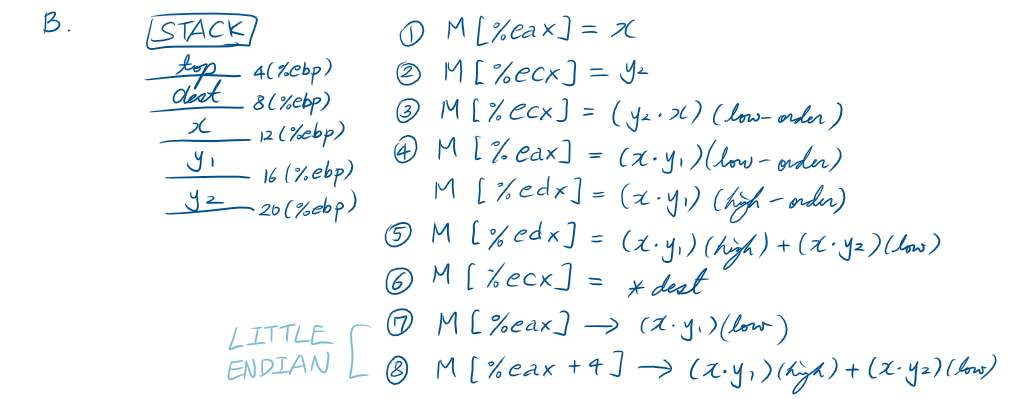 B.
STACK
top 4(%ebp)
dest 8(%ebp)
x 12(%ebp)
y₁ 16(%ebp)
y₂ 20(%ebp)
① M[%eax] = x
② M[%ecx] = y₂
③ M[%ecx] = (y₂·x) (low-order)
④ M[%eax] = (x·y₁)(low-order)
M[%edx] = (x·y₁) (high-order)
⑤ M[%edx] = (x·y₁)(high) + (x·y₂)(low)
⑥ M[%ecx] = *dest
LITTLE ENDIAN
⑦ M[%eax] → (x·y₁)(low)
⑧ M[%eax +4] → (x·y₁)(high) + (x·y₂)(low)